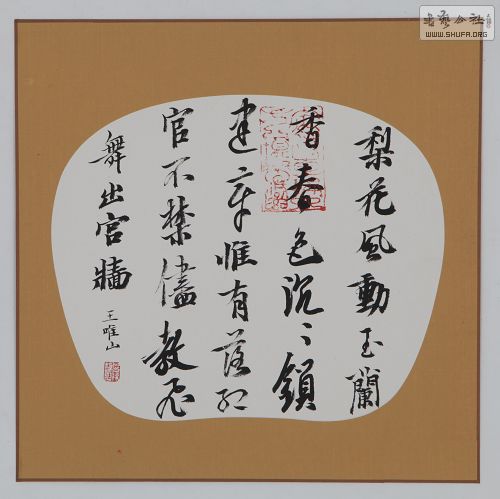 梨花風動玉蘭
香春色沉〻鎖
建章惟有落紅
官不禁儘教飛
舞出宮牆
王唯山
WWW.SHUFA.ORG